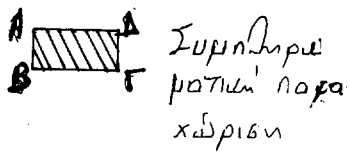 Α Δ
Β Γ
Συμπληρω
ματική παρα
χώριση